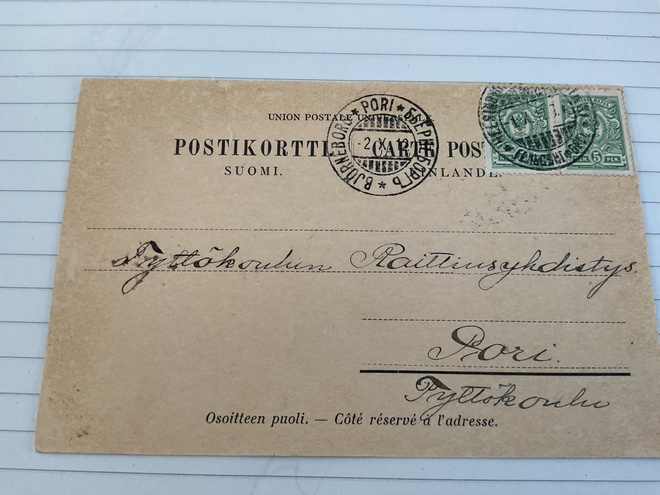 UNION POSTALE UNIVERSELLE.
POSTIKORTTI. CARTE POS
SUOMI. NLANDE.
BJÖRNEBORG ★ PORI ★ БЬЕРНЕБОРГЪ ★
-2.X.12
5 PEN
Tyttökoulun Raittiusyhdistys.
Pori.
Tyttökoulu
Osoitteen puoli. — Côté réservé à l'adresse.